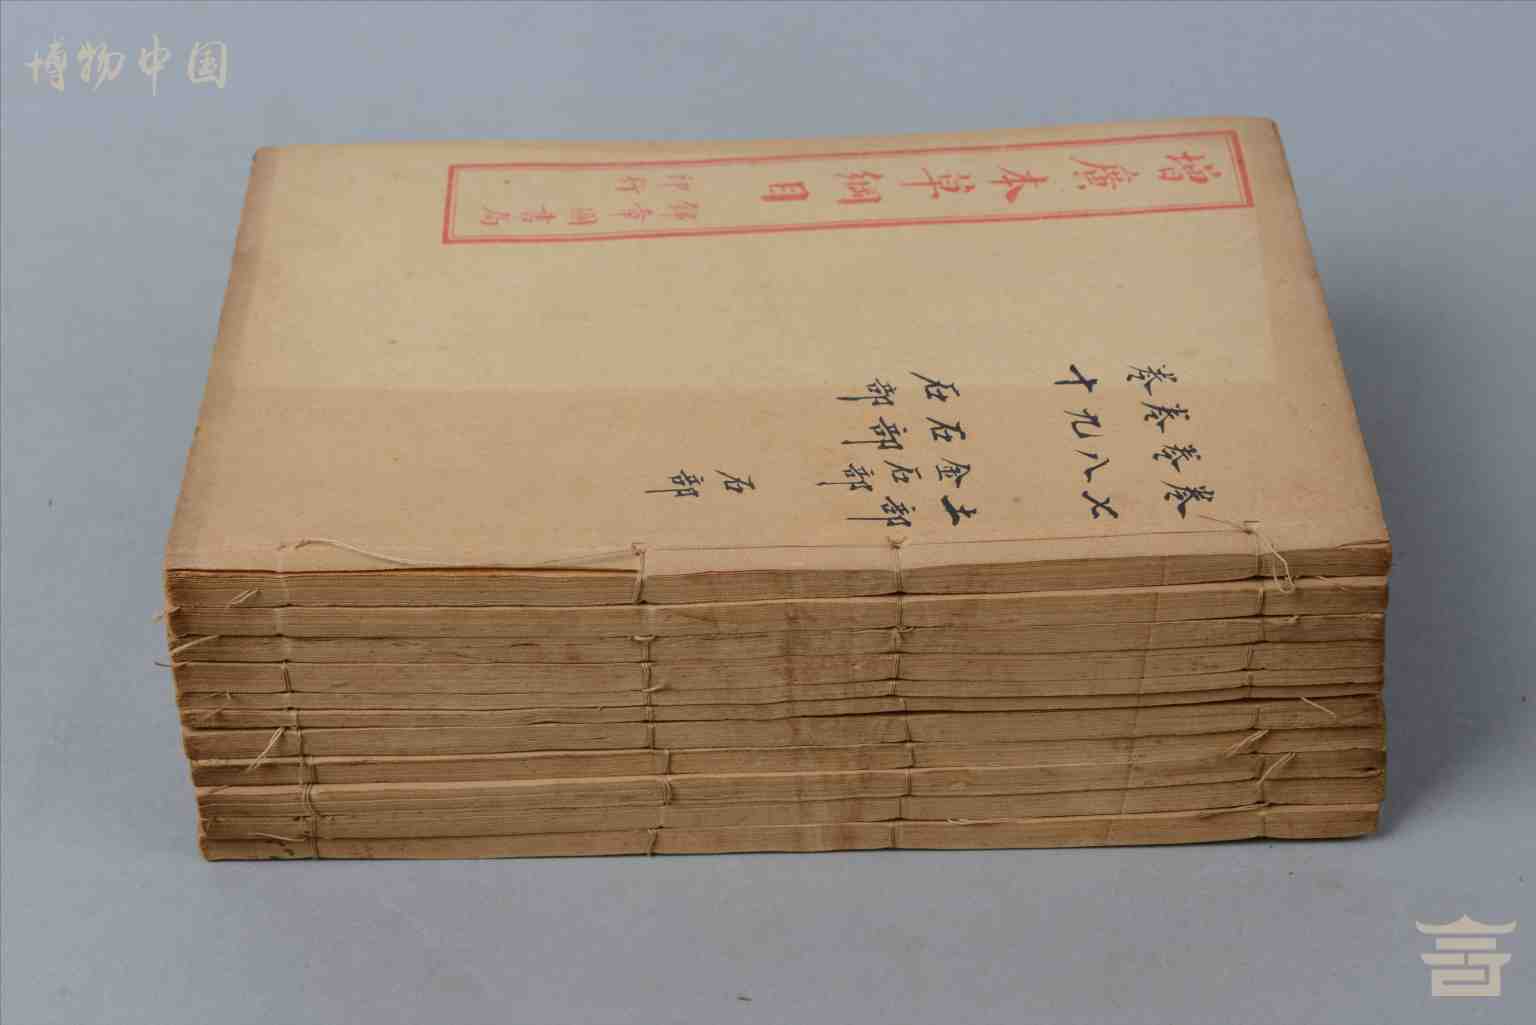 博物中国
增廣本草綱目
錦章圖書局
印行
卷七 土部
卷八 金石部
卷九 石部
卷十 石部
石部